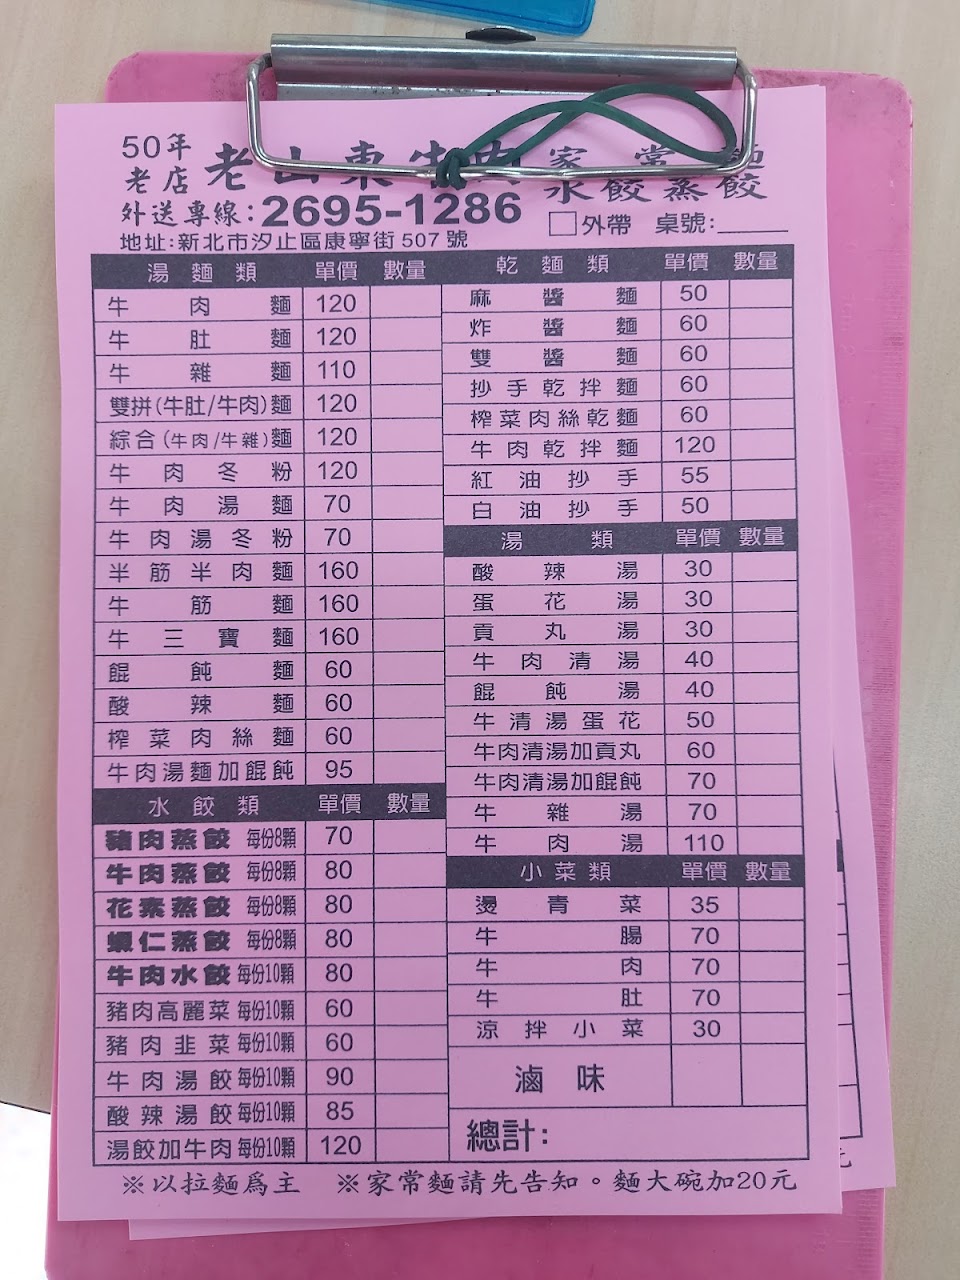 50年
老店
老山東牛肉
家常麵
水餃蒸餃
外送專線:2695-1286
□外帶 桌號:
地址:新北市汐止區康寧街507號
湯麵類 單價 數量
牛肉麵 120
牛肚麵 120
牛雜麵 110
雙拼(牛肚/牛肉)麵 120
綜合(牛肉/牛雜)麵 120
牛肉冬粉 120
牛肉湯麵 70
牛肉湯冬粉 70
半筋半肉麵 160
牛筋麵 160
牛三寶麵 160
餛飩麵 60
酸辣麵 60
榨菜肉絲麵 60
牛肉湯麵加餛飩 95
水餃類 單價 數量
豬肉蒸餃 每份8顆 70
牛肉蒸餃 每份8顆 80
花素蒸餃 每份8顆 80
蝦仁蒸餃 每份8顆 80
牛肉水餃 每份10顆 80
豬肉高麗菜 每份10顆 60
豬肉韭菜 每份10顆 60
牛肉湯餃 每份10顆 90
酸辣湯餃 每份10顆 85
湯餃加牛肉 每份10顆 120
乾麵類 單價 數量
麻醬麵 50
炸醬麵 60
雙醬麵 60
抄手乾拌麵 60
榨菜肉絲乾麵 60
牛肉乾拌麵 120
紅油抄手 55
白油抄手 50
湯類 單價 數量
酸辣湯 30
蛋花湯 30
貢丸湯 30
牛肉清湯 40
餛飩湯 40
牛清湯蛋花 50
牛肉清湯加貢丸 60
牛肉清湯加餛飩 70
牛雜湯 70
牛肉湯 110
小菜類 單價 數量
燙青菜 35
牛腸 70
牛肉 70
牛肚 70
涼拌小菜 30
滷味
總計:
※以拉麵為主 ※家常麵請先告知。麵大碗加20元
元